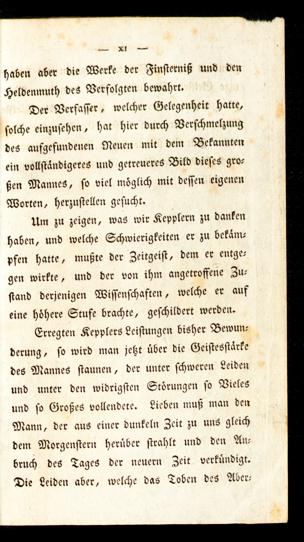 — XI —
haben aber die Werke der Finsterniß und den
Heldenmuth des Verfolgten bewahrt.
Der Verfasser, welcher Gelegenheit hatte,
solche einzusehen, hat hier durch Verschmelzung
des aufgefundenen Neuen mit dem Bekannten
ein vollständigeres und getreueres Bild dieses gro-
ßen Mannes, so viel möglich mit dessen eigenen
Worten, herzustellen gesucht.
Um zu zeigen, was wir Kepplern zu danken
haben, und welche Schwierigkeiten er zu bekäm-
pfen hatte, mußte der Zeitgeist, dem er entge-
gen wirkte, und der von ihm angetroffene Zu-
stand derjenigen Wissenschaften, welche er auf
eine höhere Stufe brachte, geschildert werden.
Erregten Kepplers Leistungen bisher Bewun-
derung, so wird man jetzt über die Geistesstärke
des Mannes staunen, der unter schweren Leiden
und unter den widrigsten Störungen so Vieles
und so Großes vollendete. Lieben muß man den
Mann, der aus einer dunkeln Zeit zu uns gleich
dem Morgenstern herüber strahlt und den An-
bruch des Tages der neuern Zeit verkündigt.
Die Leiden aber, welche das Toben des Aber-